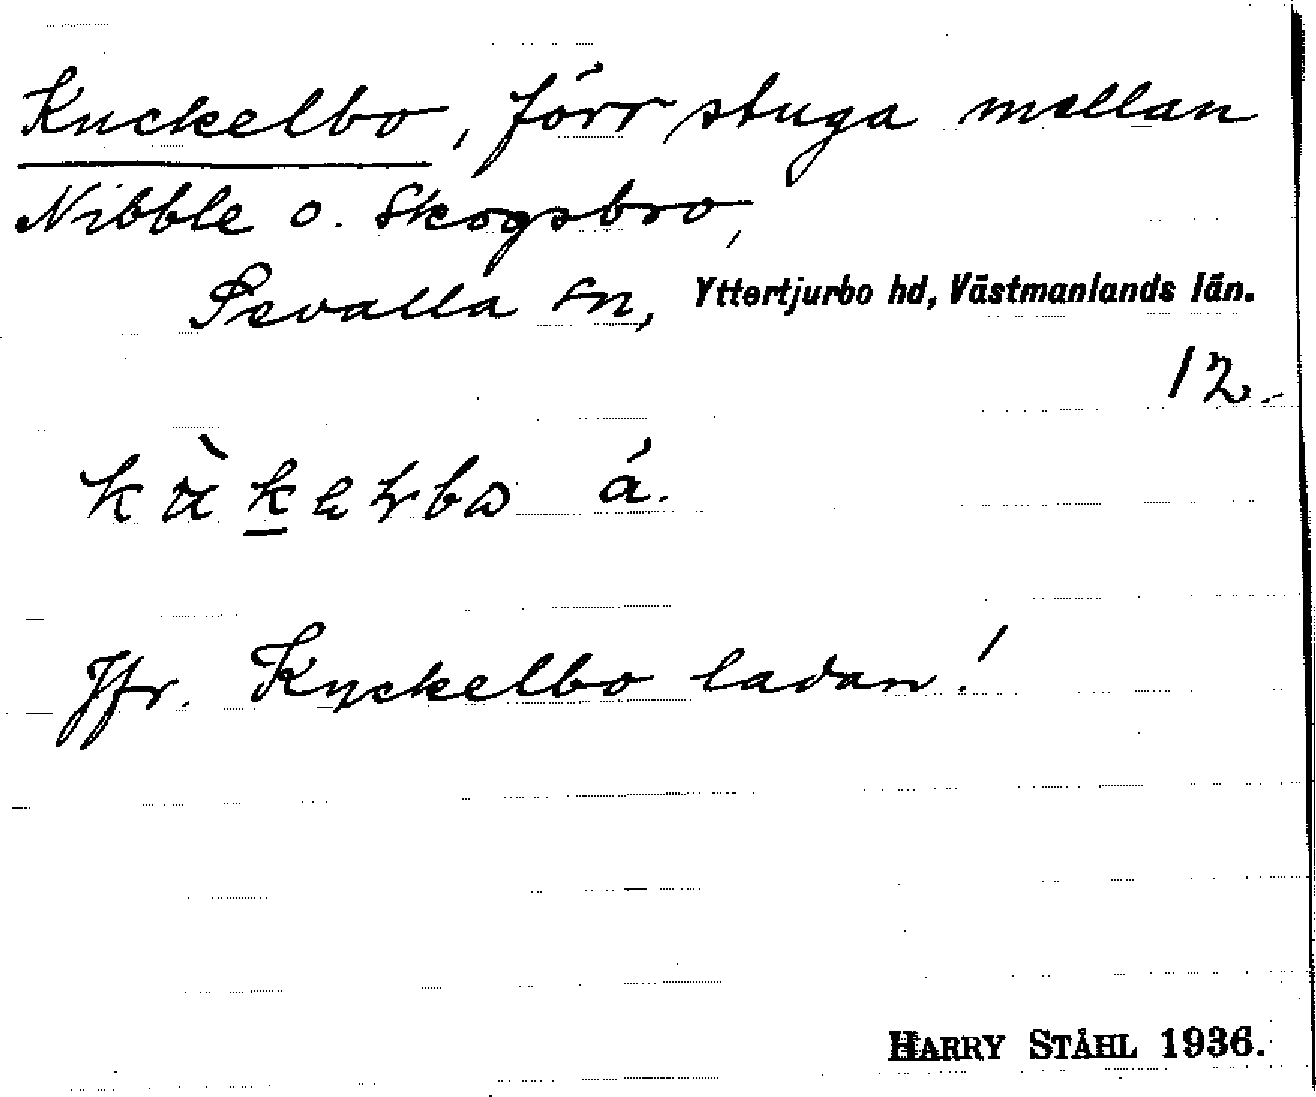 Kuckelbo, förr stuga mellan
Nibble o. Skogsbro,
Sevalla sn, Yttertjurbo hd, Västmanlands län.
12.
á.
Jfr. Kyckelbo ladan!
HARRY STÅHL 1936.